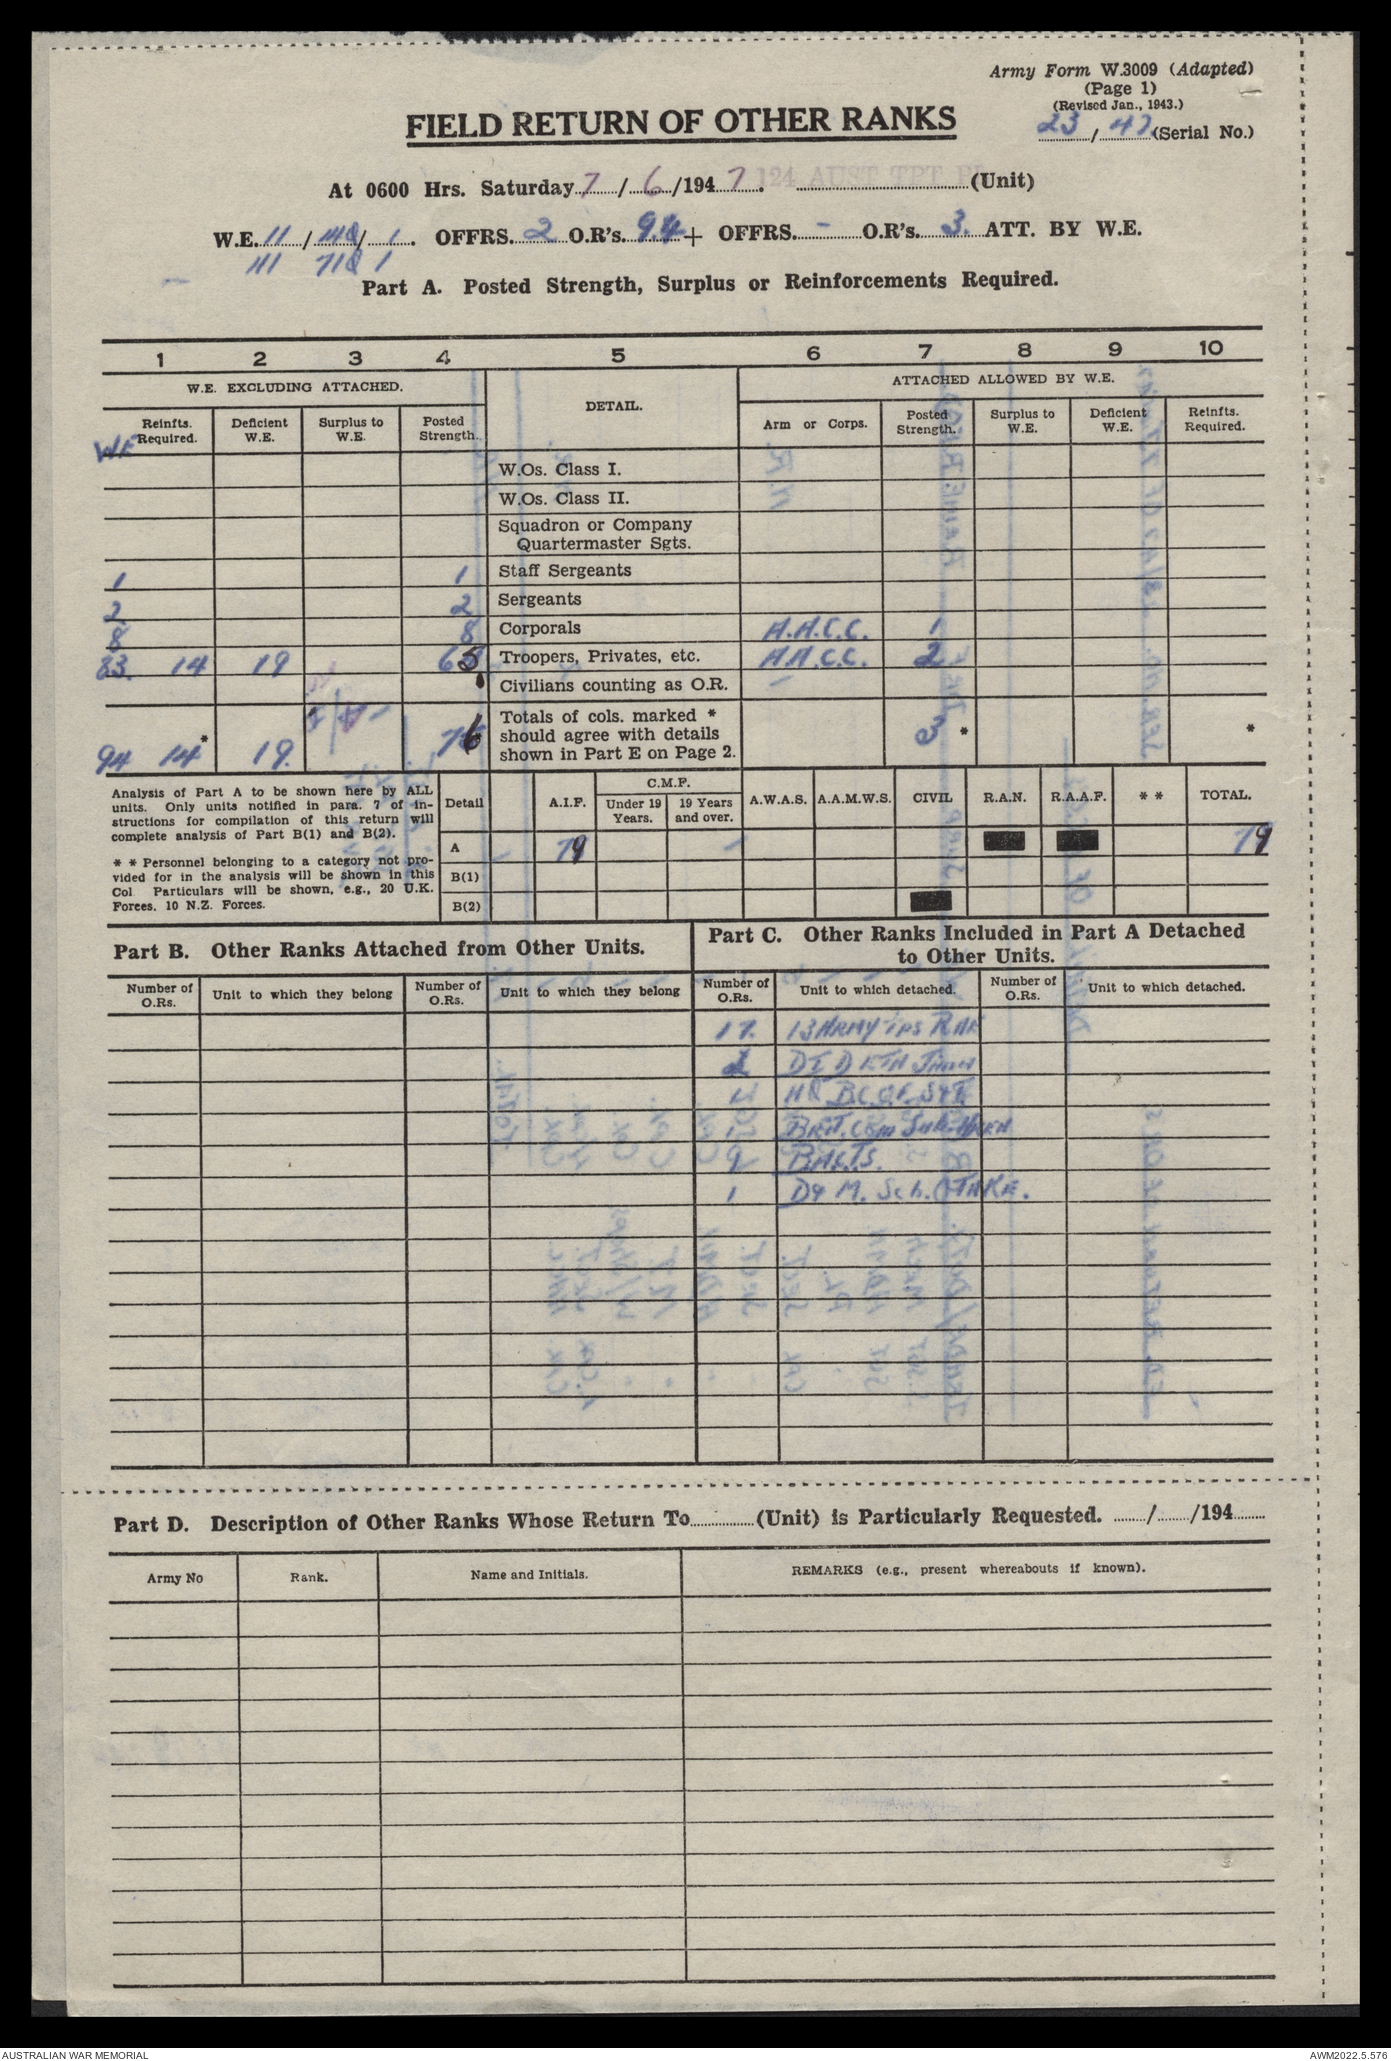 Army Form W.3009 (Adapted)
(Page 1)
(Revised Jan., 1943.)
23 / 47 (Serial No.)
FIELD RETURN OF OTHER RANKS
At 0600 Hrs. Saturday 7 / 6 /194 7. 124 AUST TPT (Unit)
W.E. 11 / / 1. OFFRS. 2 O.R's. 94 + OFFRS. - O.R's. 3. ATT. BY W.E.
111 1
Part A. Posted Strength, Surplus or Reinforcements Required.
1 2 3 4 5 6 7 8 9 10
W.E. EXCLUDING ATTACHED. DETAIL. ATTACHED ALLOWED BY W.E.
Reinfts. Required. Deficient W.E. Surplus to W.E. Posted Strength. Arm or Corps. Posted Strength. Surplus to W.E. Deficient W.E. Reinfts. Required.
WE
W.Os. Class I.
W.Os. Class II.
Squadron or Company
Quartermaster Sgts.
1 1 Staff Sergeants
2 2 Sergeants
8 8 Corporals A.A.C.C. 1
83. 14 19 65 Troopers, Privates, etc. A.A.C.C. 2
Civilians counting as O.R.
Totals of cols. marked *
should agree with details
shown in Part E on Page 2.
94 14 * 19. 76 3 * *
Analysis of Part A to be shown here by ALL
units. Only units notified in para. 7 of in-
structions for compilation of this return will
complete analysis of Part B(1) and B(2).
* * Personnel belonging to a category not pro-
vided for in the analysis will be shown in this
Col Particulars will be shown, e.g., 20 U.K.
Forces, 10 N.Z. Forces.
Detail A.I.F. C.M.F. Under 19 Years. 19 Years and over. A.W.A.S. A.A.M.W.S. CIVIL R.A.N. R.A.A.F. * * TOTAL.
A 79 79
B(1)
B(2)
Part B. Other Ranks Attached from Other Units.
Part C. Other Ranks Included in Part A Detached
to Other Units.
Number of O.Rs. Unit to which they belong Number of O.Rs. Unit to which they belong Number of O.Rs. Unit to which detached. Number of O.Rs. Unit to which detached.
17. 13 ARMY TPS RAE
2 DID ETA JIMA
HQ B.C.O.F.
1 BRIT. COM Sub
9 B.A.C.T.S.
1 D & M. Sch. OTAKE.
Part D. Description of Other Ranks Whose Return To (Unit) is Particularly Requested. / /194
Army No Rank. Name and Initials. REMARKS (e.g., present whereabouts if known).
AUSTRALIAN WAR MEMORIAL AWM2022.5.576